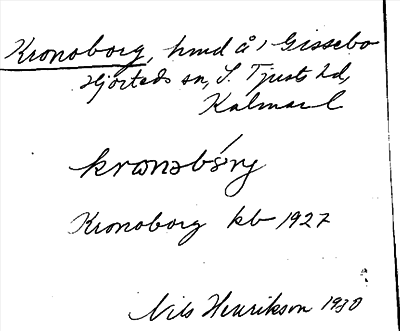 Kronoborg, hmd å, Gissebo
Hjorteds sn, S. Tjusts hd,
Kalmar l
Kronoborg kb 1927
Nils Henrikson 1930